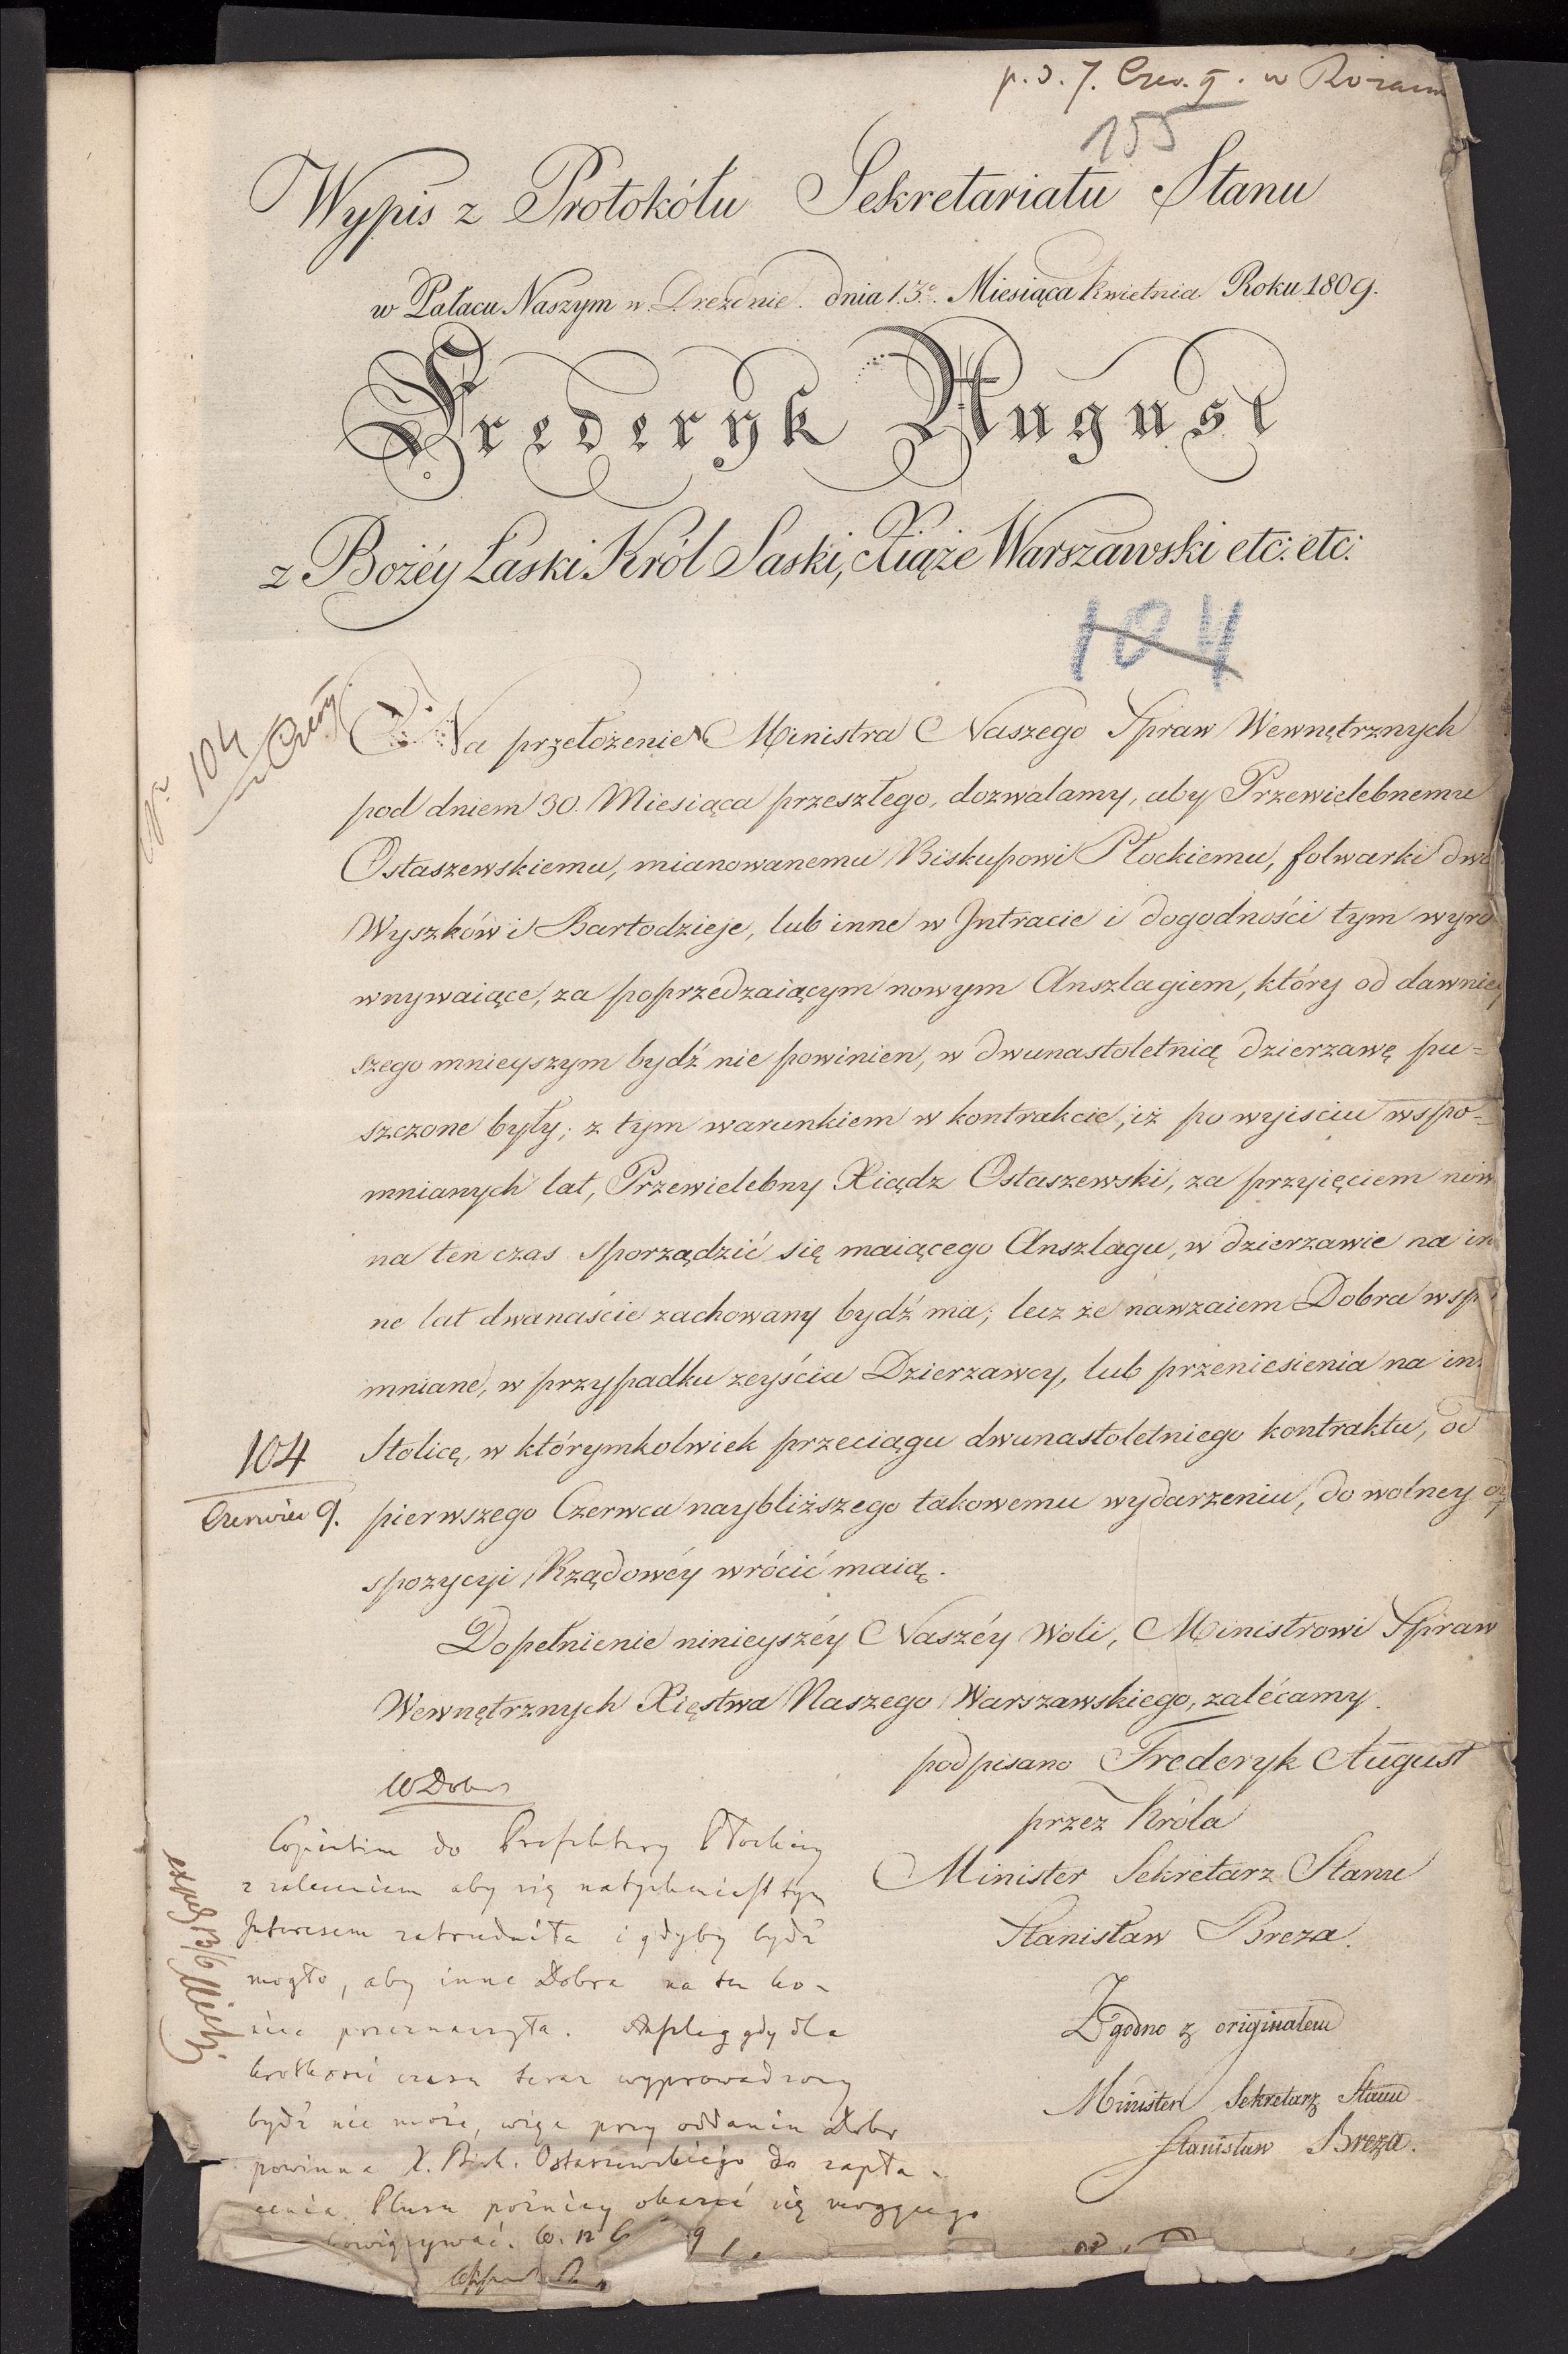 p. d. 7. Czer. 9. w Rożanie
155
Wypis z Protokółu Sekretariatu Stanu
w Pałacu Naszym w Dreźnie dnia 13º Miesiąca Kwietnia Roku 1809.
Frederyk August
z Bożéy Łaski Król Saski, Xiąże Warszawski etc: etc:
104
104
Czerw
Na przełożenie Ministra Naszego Spraw Wewnętrznych
pod dniem 30. Miesiąca przeszłego, dozwalamy, aby Przewielebnemu
Ostaszewskiemu, mianowanemu Biskupowi Płockiemu, folwarki dwa
Wyszków i Bartodzieje, lub inne w Intracie i dogodności tym wyró
wnywaiące, za poprzedzaiącym nowym Anszlagiem, który od dawniey
szego mnieyszym bydź nie powinien, w dwunastoletnią dzierzawę pu=
szczone były; z tym warunkiem w kontrakcie, iż po wyjściu wspo=
mnianych lat, Przewielebny Xiądz Ostaszewski, za przyięciem now
na ten czas sporządzić się maiącego Anszlagu, w dzierzawie na in
ne lat dwanaście zachowany bydź ma; lecz że nawzaiem Dobra wspo
mniane, w przypadku zeyścia Dzierzawcy, lub przeniesienia na in
104
Stolicę, w którymkolwiek przeciągu dwunastoletniego kontraktu, od
Czerwiec 9.
pierwszego Czerwca naybliższego takowemu wydarzeniu, do wolney dy
spozycyi Rządowéy wrócić maią.
Dopełnienie ninieyszéy Naszéy Woli, Ministrowi Spraw
Wewnętrznych Xięstwa Naszego Warszawskiego, zalécamy.
podpisano Frederyk August
przez Króla
Minister Sekretarz Stanu
Stanisław Breza.
Zgodno z originałem
Minister Sekretarz Stanu
Stanisław Breza.
W Dobr
Copiatim do Prefektury Płockiey
z zaleceniem aby się natychmiast tym
Interesem zatrudniła i gdyby bydź
mogło, aby inne Dobra na ten ko-
niec przeznaczyła. Anszlag gdy dla
krotkości czasu teraz wyprowadzony
bydź nie może, więc przy oddaniu Dobr
powinna X. Bisk. Ostaszewskiego do zapła-
cenia Plusu poźniey okazać się mogącego
obowiązywać. W. 12 6 9
exped 13/6